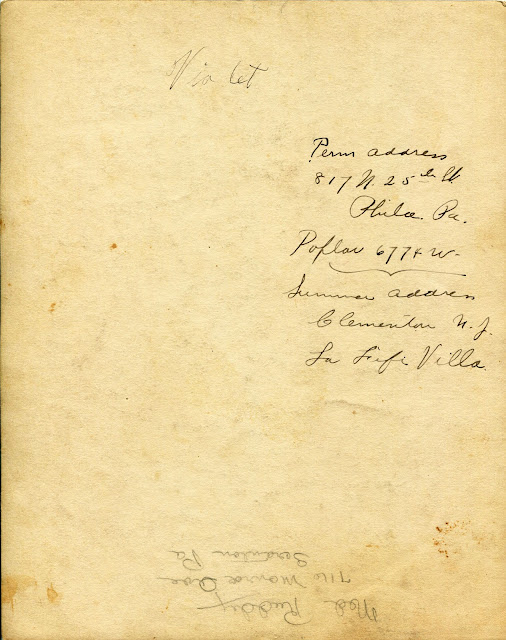 Violet
Perm address
817 N. 25th St.
Phila. Pa.
Poplar 6774 W-
Summer address
Clementon N. J.
La Fife Villa.
Med Ruddy
716 Monroe Ave
Scranton Pa